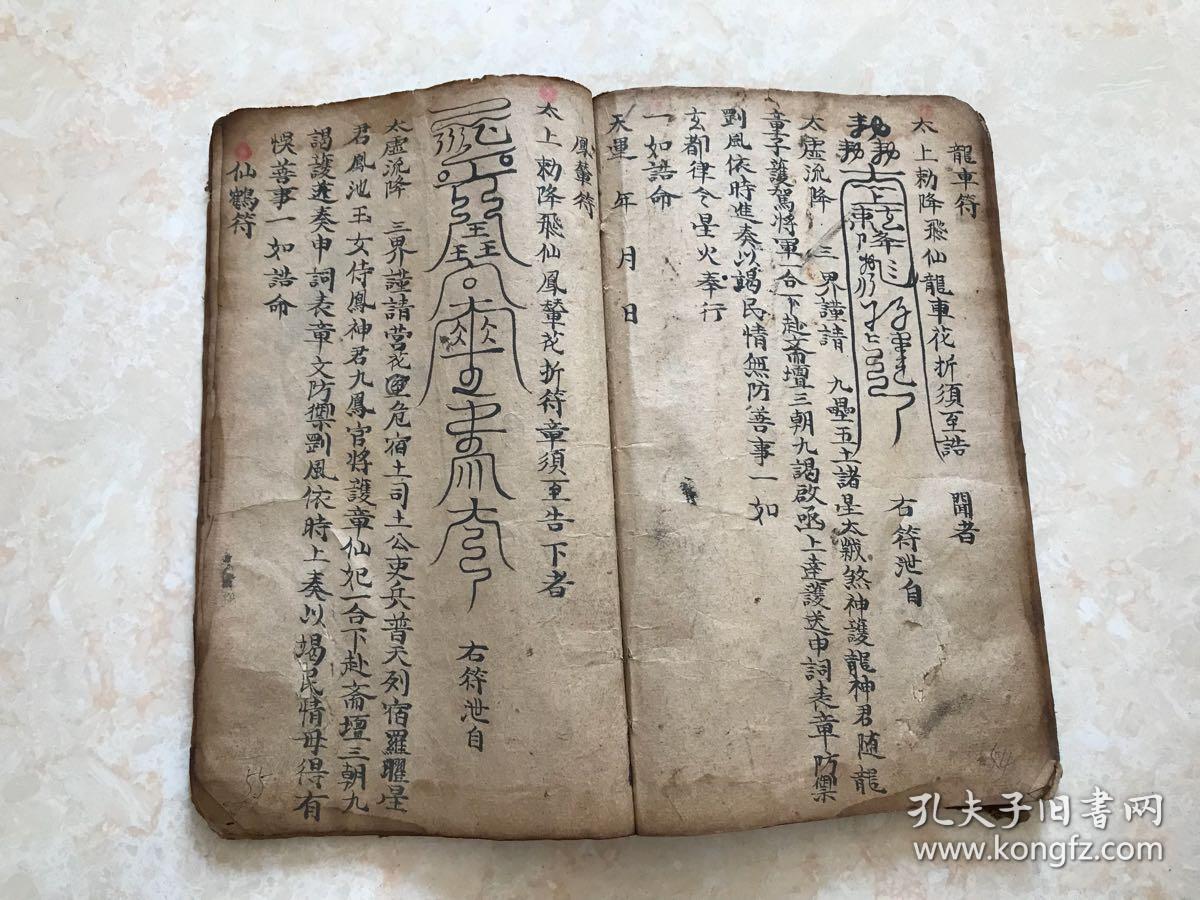 龍車符
太上勅降飛仙龍車花折須至誥
聞者
右符泄自
太虛流降 三界謹請 九壘五土諸星太歲煞神護龍神君随龍
童子護駕將軍一合下赴斋壇三朝九謁啟函上達護送申詞表章防禦
罡風依時進奏以竭民情無防善事一如
玄都律令星火奉行
一如誥命
天運 年 月 日
鳳輦符
太上勅降飛仙鳳輦花折符章須至告下者
右符泄自
太虛流降 三界謹請營花危宿土司土公吏兵普天列宿羅睺星
君鳳池玉女侍鳳神君九鳳官將護章仙妃一合下赴斋壇三朝九
謁護送奏申詞表章文防禦罡風依時上奏以竭民情毋得有
悞善事一如誥命
仙鶴符
54
55
孔夫子旧书网
www.kongfz.com